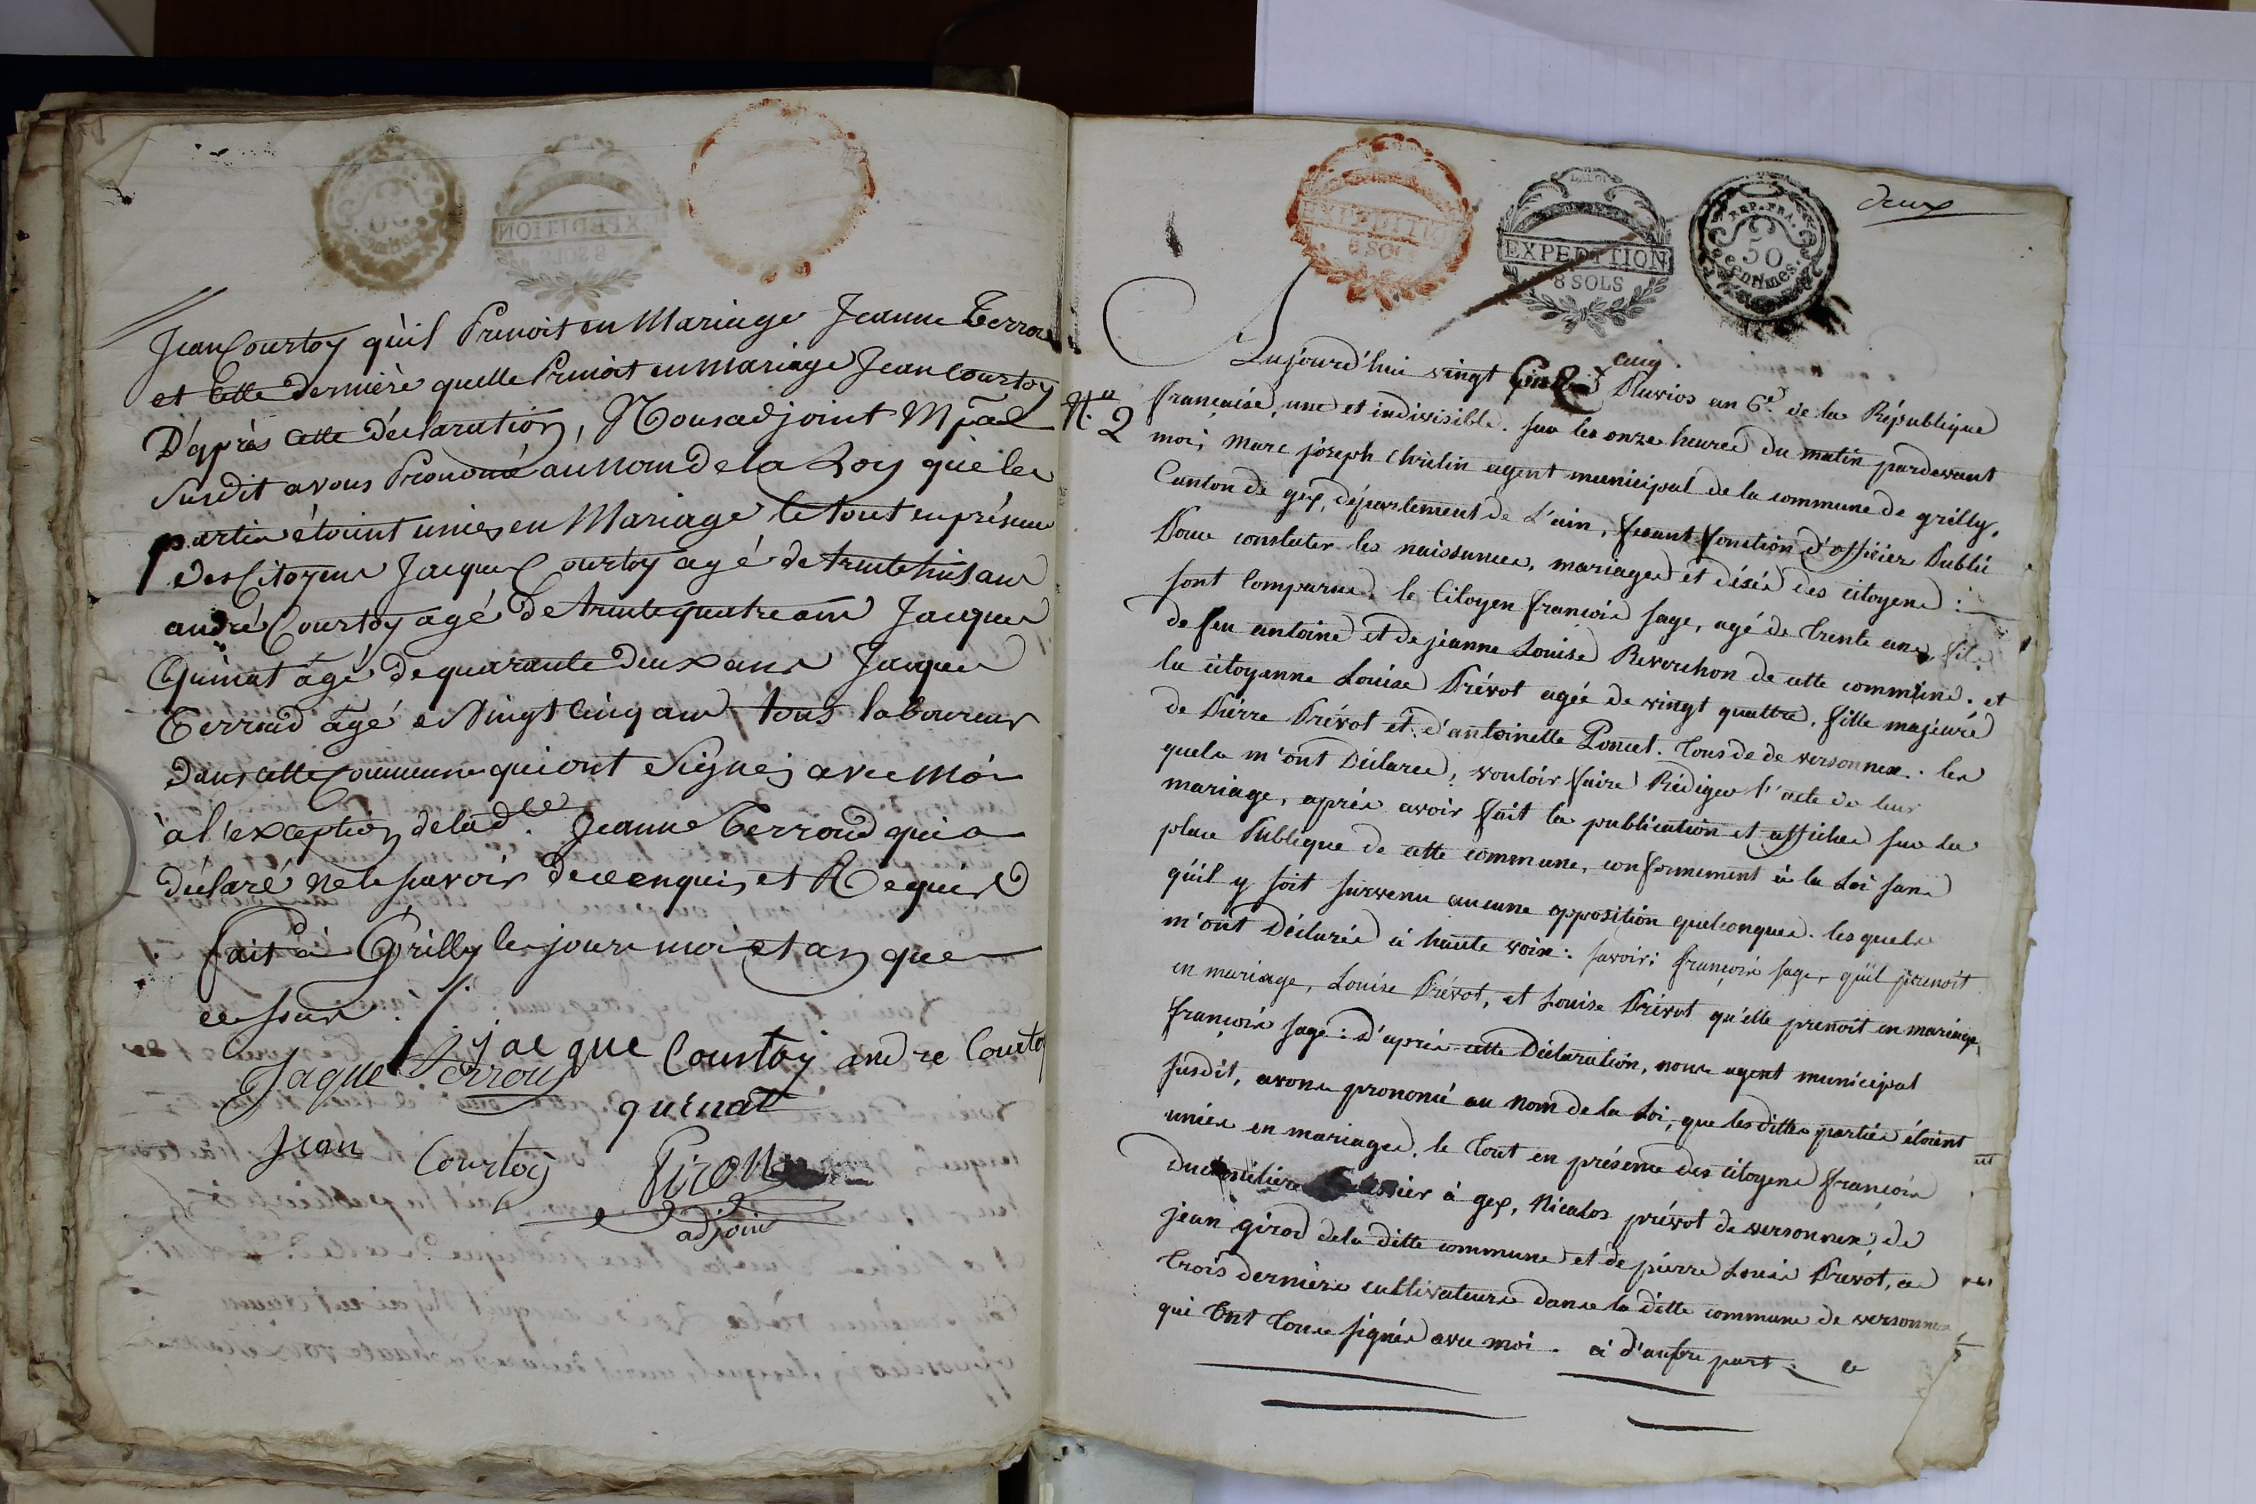 Jean Courtoy qu'il Prenoit en Mariage Jeanne Terrou
et Cette dernière quelle Prenoit en mariage Jean Courtoy
D'après cette déclaration, Nous adjoint Mpal
Susdit avons Prononcé au Nom de la Loy que les
parties étoint unies en Mariage le tout en présence
des Citoyens Jacque Courtoy agé de trente huit ans
andré Courtoy agé de trente quatre ans Jacques
Quinat âgé de quarante deux ans Jacques
Terroud âgé de Vingt Cinq ans tous laboureurs
dans cette Commune qui ont Signés avec Moi
à l'exception de lad.te Jeanne Terroud qui a
déclaré ne le savoir de ce enquis et Requise
fait à Grilly les jour mois et an que
dessus.
jacque Courtoy andre Courtoy
Jaque Terroux
quinat
Jean Courtoy
Girod
adjoint
EXPEDITION
8 SOLS
EXPEDITION
8 SOLS
REP. FRA.
50
centimes.
deux
cinq
Aujourd'hui vingt Pluvios an 6.e de la République
N.o 2
française, une et indivisible. sur les onze heures du matin pardevant
moi, Marc joseph Christin agent municipal de la commune de grilly,
Canton de gex, département de L'ain, fesant fonction d'officier Public
Pour constater les naissances, mariages et décés des citoyens :
sont Comparus, le Citoyen françois sage, agé de trente ans, fils
de feu antoine et de jeanne Louise Reverchon de cette commune. et
la citoyenne Louise Prévot agée de vingt quattre, fille majeure
de Pierre Prévot et d'antoinette Poncet. tous de de versonnex. les
quels m'ont Déclarés, vouloir faire Rédiger l'acte de leur
mariage, après avoir fait la publication et affiches sur la
place Publique de cette commune, conformement à la Loi sans
qu'il y soit survenu aucune opposition quelconques. les quels
m'ont Déclarés à haute voix : savoir : françois sage, qu'il prenoit
en mariage, Louise Prévot, et Louise Prévot qu'elle prenoit en mariage,
françois sage : d'après cette Déclaration, nous agent municipal
susdit, avons prononcé au nom de la Loi, que lesdittes parties étoient
unies en mariages, le tout en présence des citoyens françois
à gex, Nicalos prévot de versonnex, de
jean girod dela ditte commune et de pierre Louis Prevot, ces
trois derniers cultivateurs dans la ditte commune de versonnex
qui ont tous signés avec moi. à d'autre part.